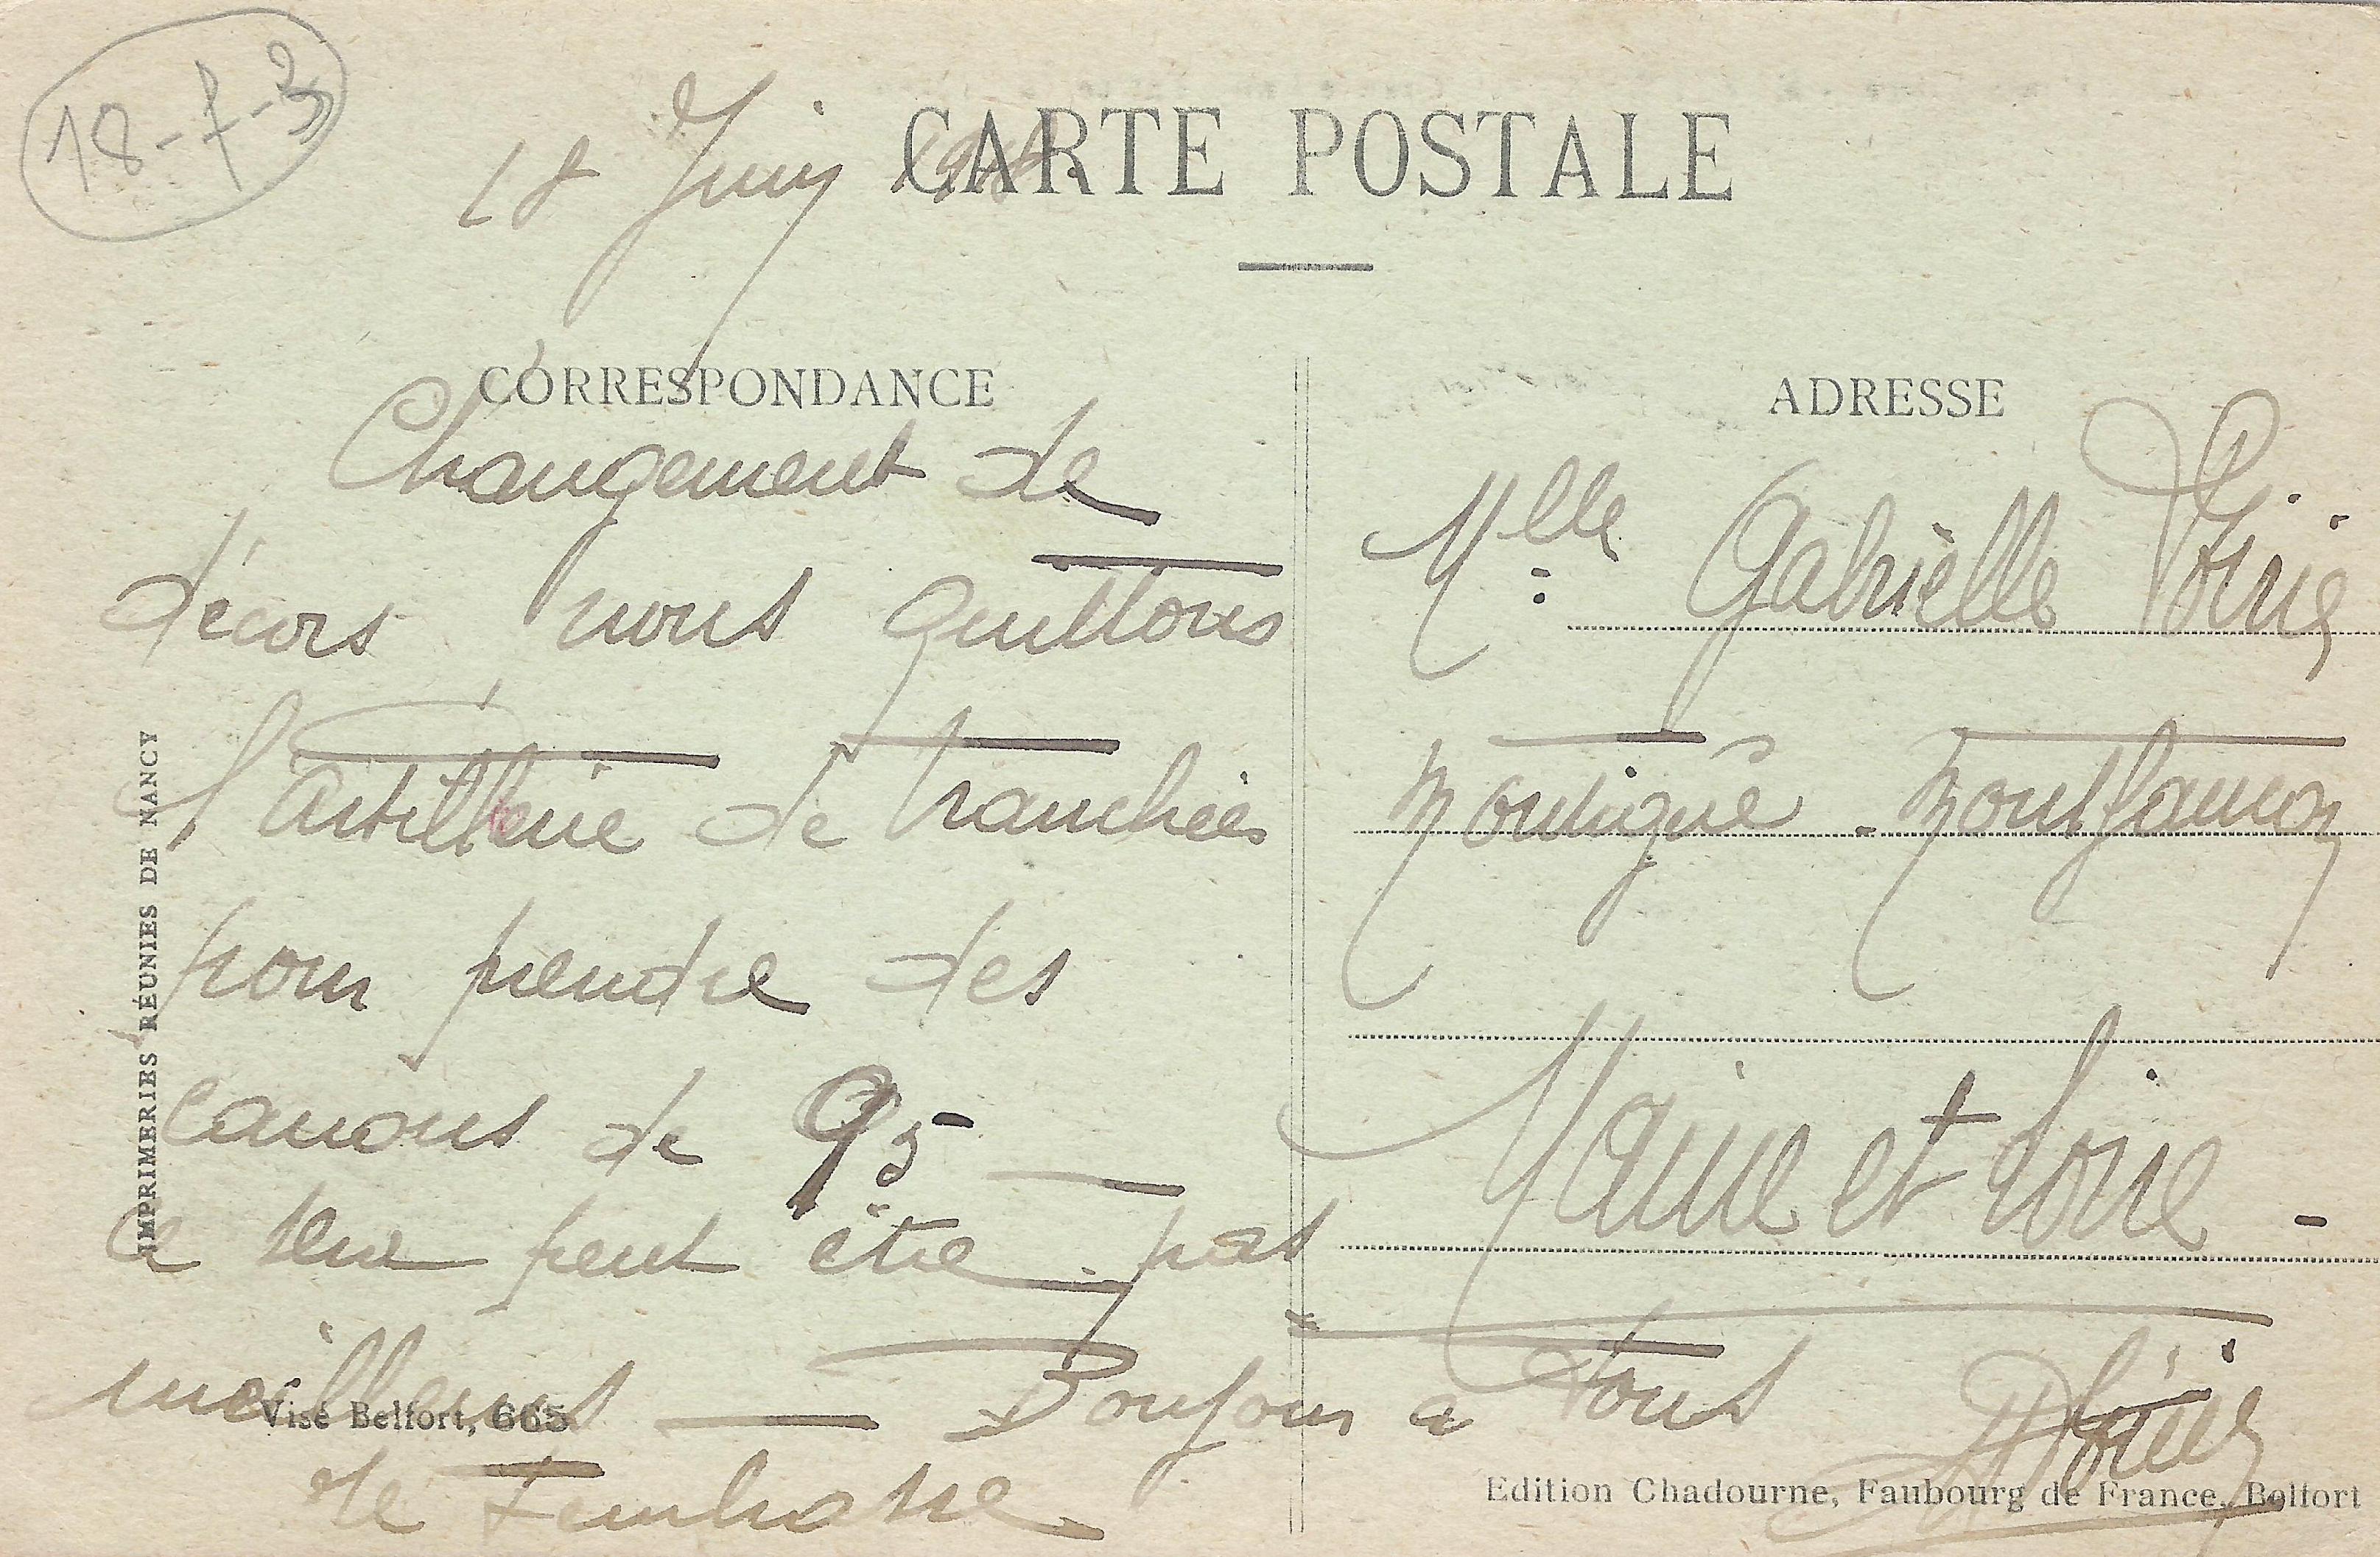 18-7-3
18 Juin 1918
CARTE POSTALE
CORRESPONDANCE
Changement de
décors nous quittons
l'artillerie de tranchées
pour prendre des
canons de 95
ce sera peut être pas
meilleurs — Bonjour a tous
Je t'embrasse
ADRESSE
Mlle Gabrielle
Montigné-Montfaucon
Maine et Loire -
IMPRIMERIES RÉUNIES DE NANCY
Visé Belfort, 665
Edition Chadourne, Faubourg de France, Belfort